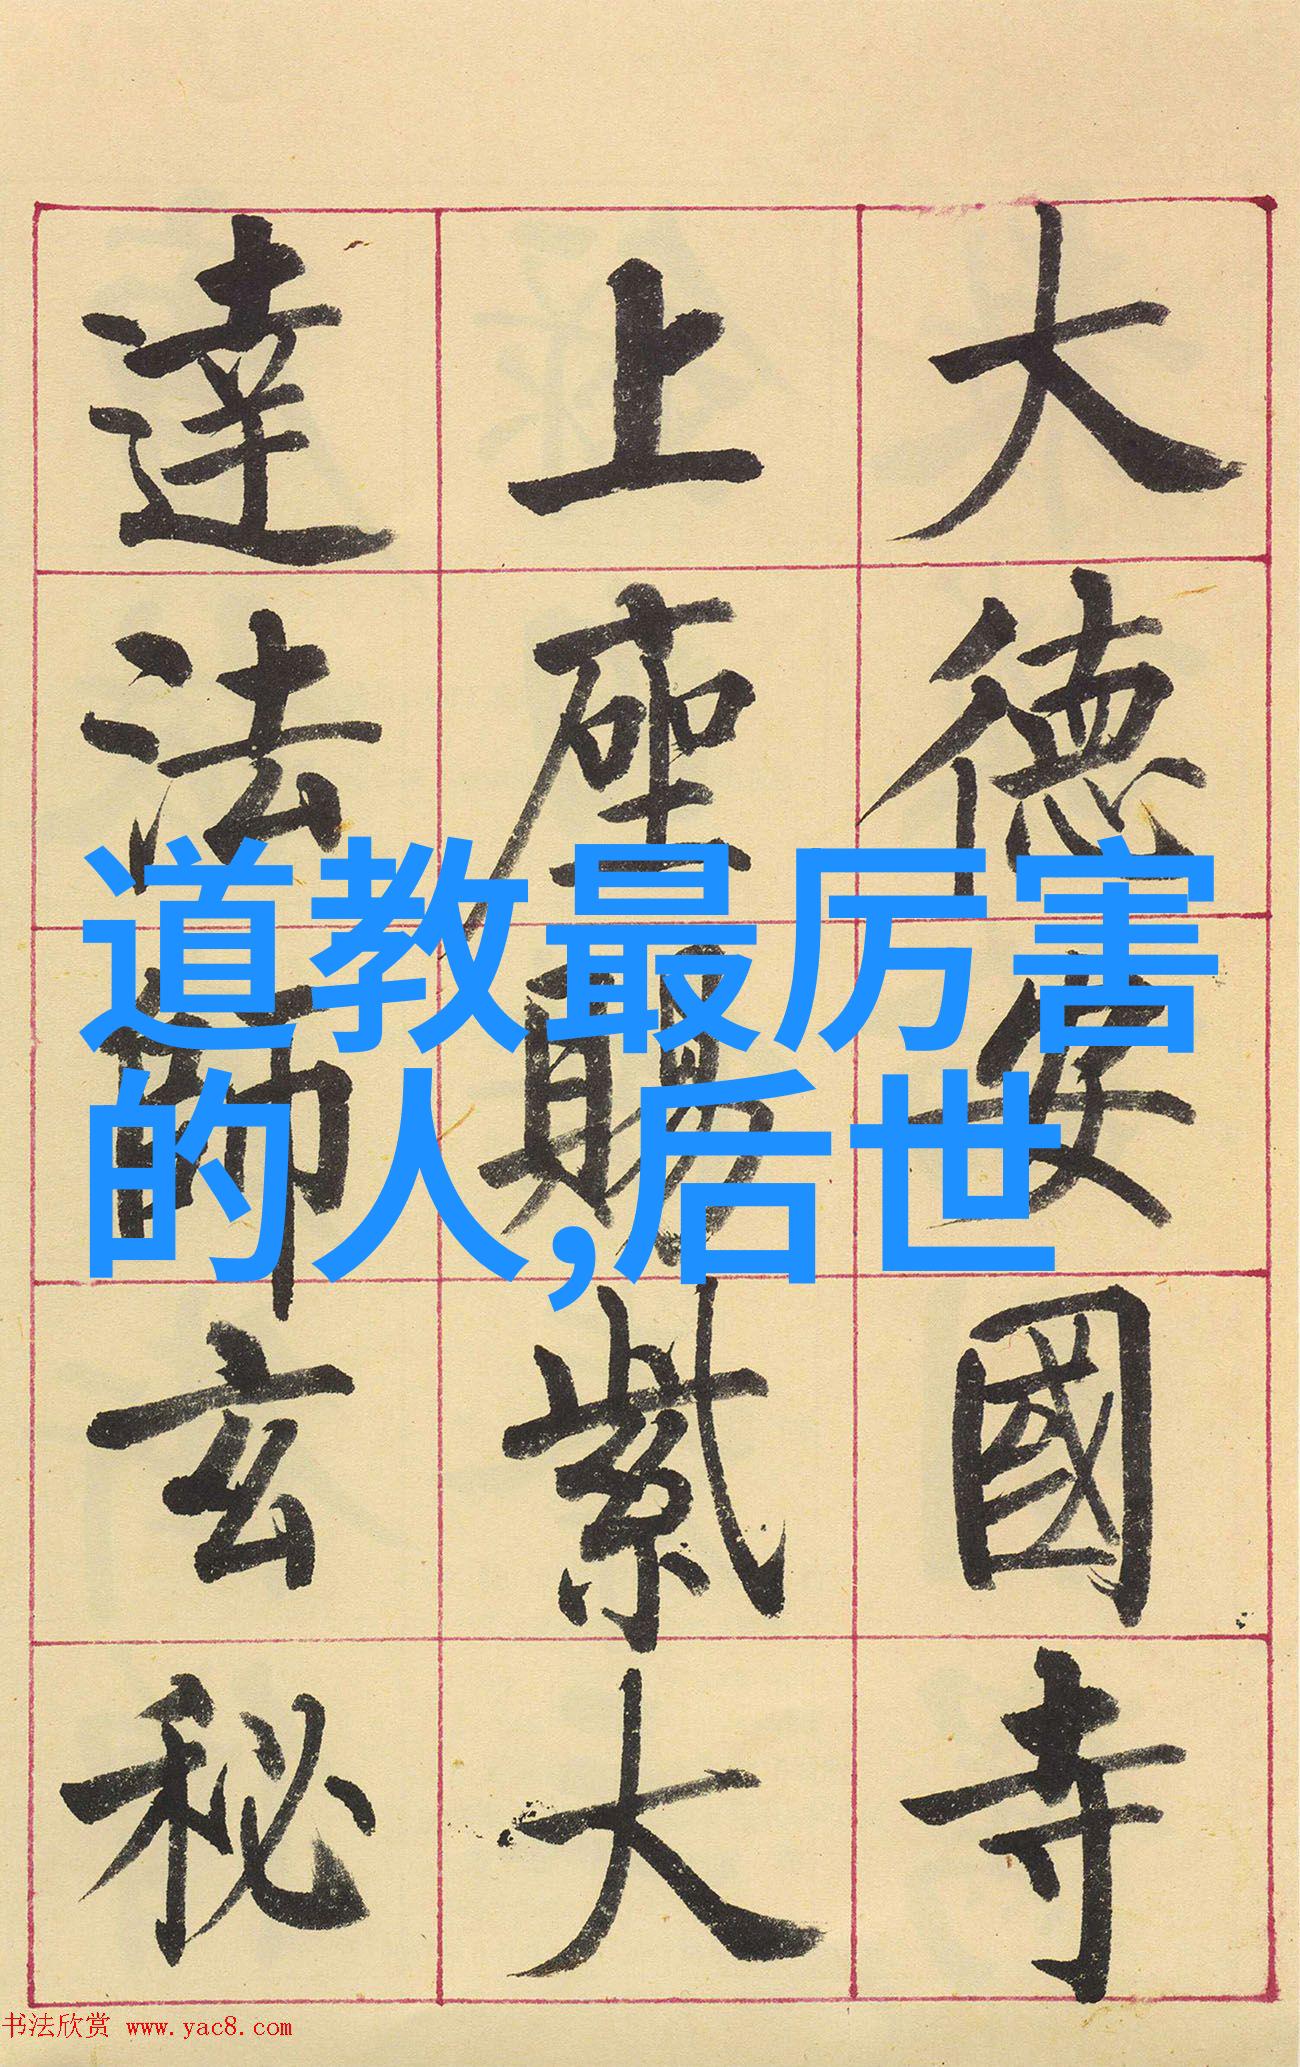 大德安國寺
上座賜紫大
達法師玄秘
道教最厉害
的人,后世
书法欣赏 www.yac8.com